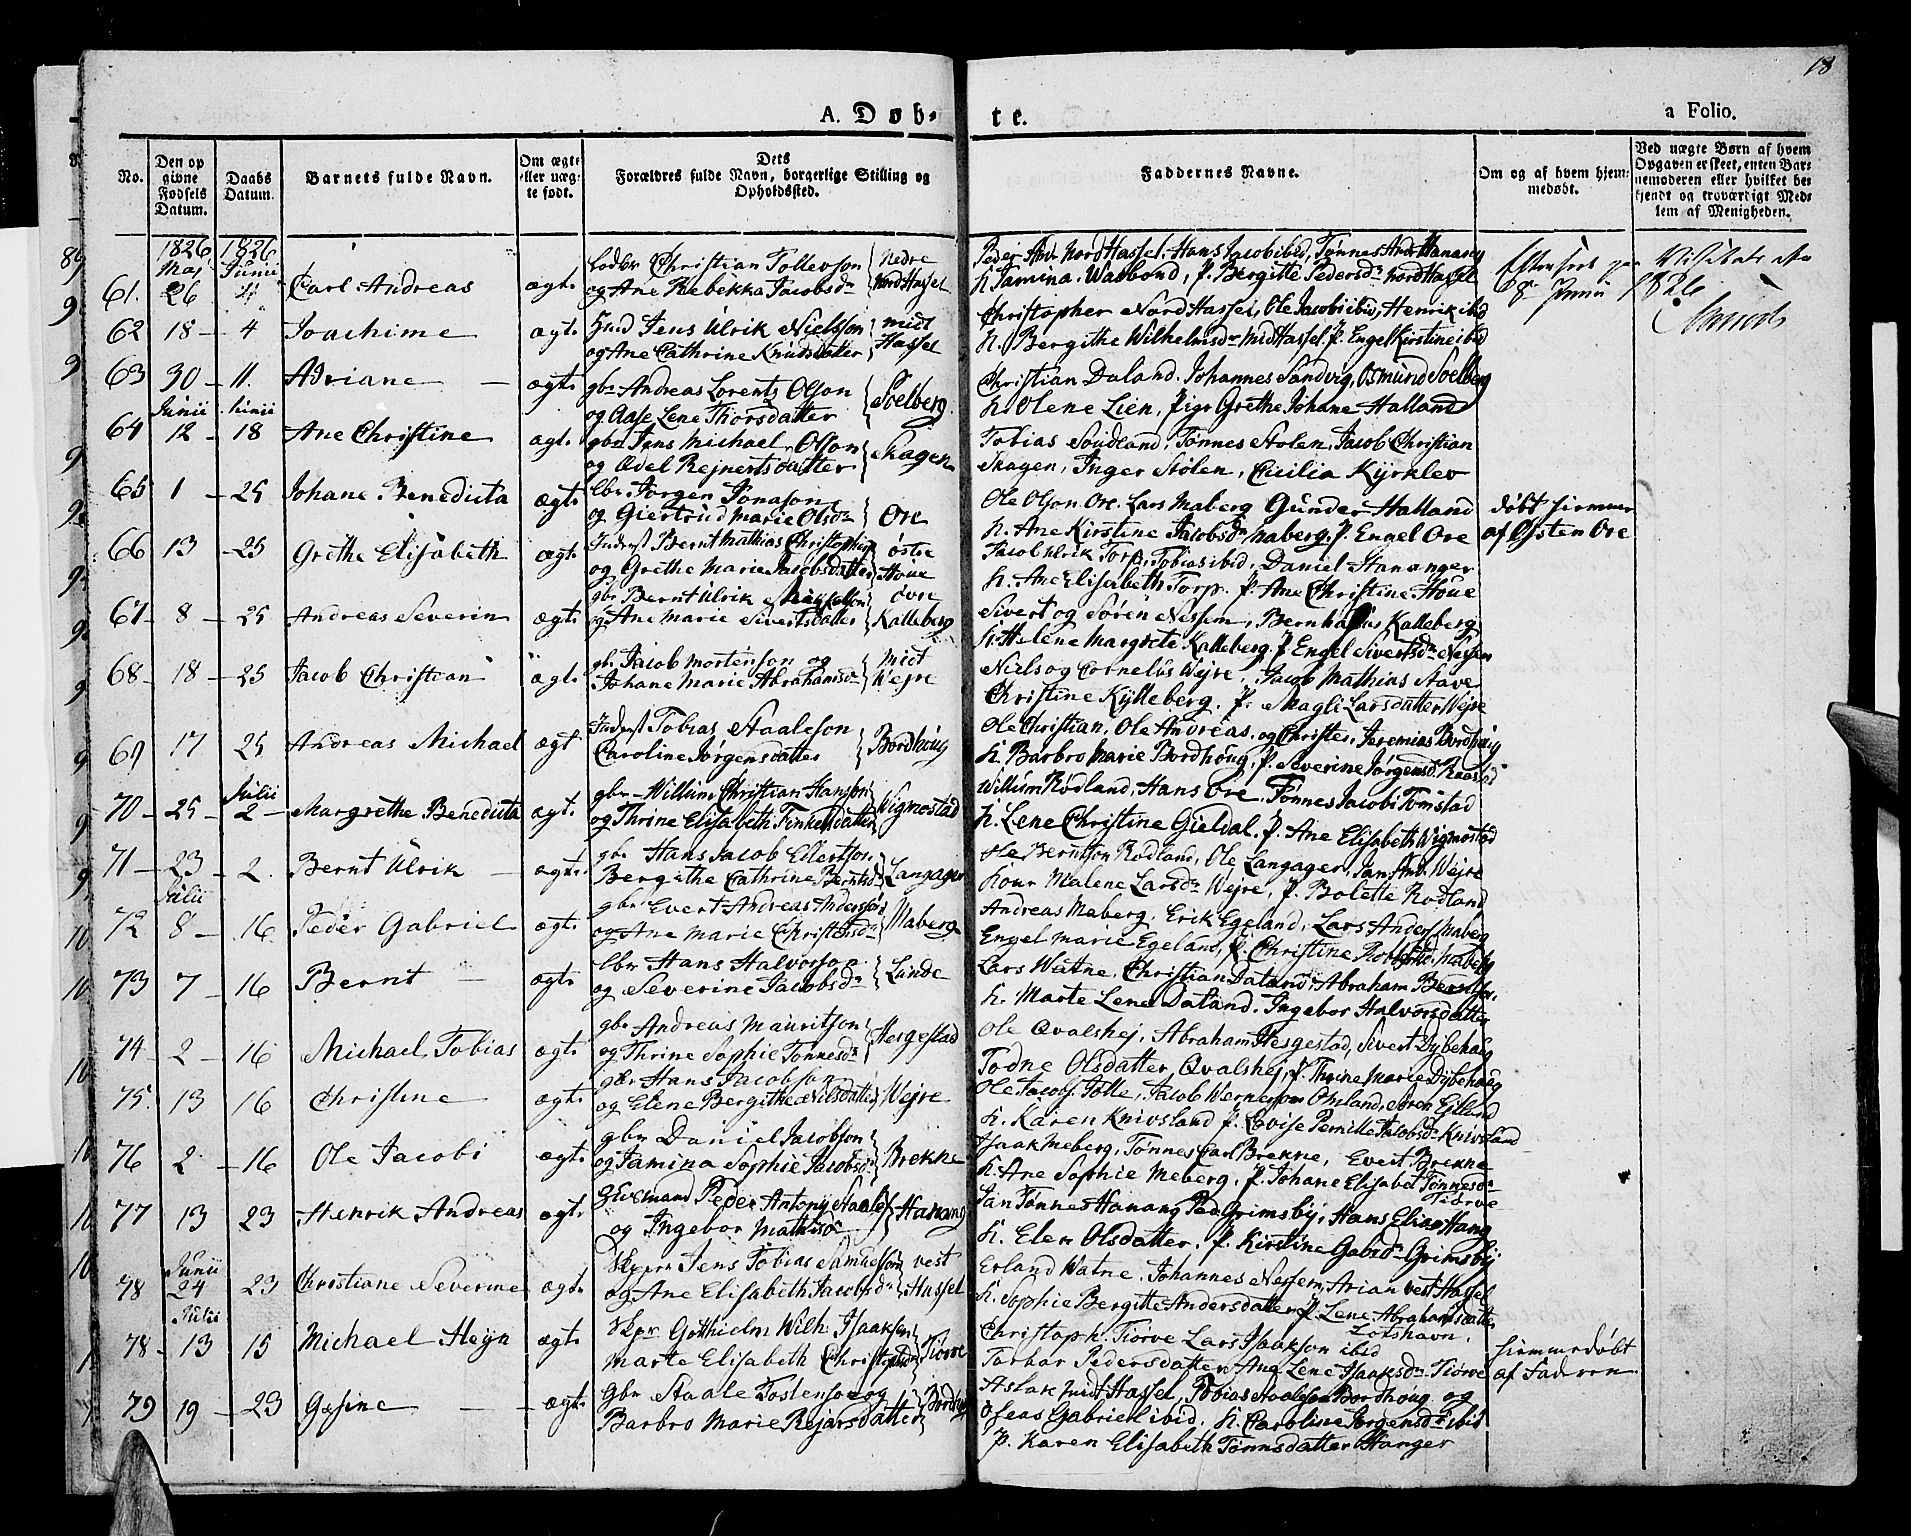 18
A. Døb-
te.
a Folio.
No.
Den op
givne
Fødsels
Datum.
Daabs
Datum.
Barnets fulde Navn.
Om ægte
eller uæg-
te født.
Dets
Forældres fulde Navn, borgerlige Stilling og
Opholdssted.
Faddernes Navne.
Om og af hvem hjem-
medøbt.
Ved uægte Børn af hvem
Opgaven er skeet, enten Bar-
nemoderen eller hvilket be-
kjendt og troværdigt Med-
lem af Menigheden.
1826 1826
Maj Junii
61. 26 4 Carl Andreas ægt. Christian Tollevson Nedre
og Ane Rebekka Jacobsdr Nord Hassel
Peder And. Nord Hassel, Hans Jacob ibid, Tønnes And. Hanang
K. Tamina Watbond, P. Bergitte Pedersdr Nord Hassel
8de Junii 1826
62 18 - 4 Joachime ægt. Jens Ulrik Nielsson midt
og Ane Cathrine Knudsdatter Hassel
Christopher Nord Hassel, Ole Jacob ibid, Henrik ibid
K. Bergithe Wilhelmsdr Mid Hassel. P. Engel Kirstine ibid
63 30 - 11. Adriane - ægt. gbr Andreas Lorentz Olson
og Aase Lene Thorsdatter Soelberg
Christian Daland. Johannes Sandvig, Osmund Soelberg
K. Olene Lien, Pige Grethe Johane Halland
Junii Junii
64 12 - 18 Ane Christine ægt. gbr Jens Michael Olson
og Ædel Rejnertsdatter Skagen
Tobias Soudland, Tønnes Stolen, Jacob Christian
Skagen, Inger Stølen, Cicilia Kyrklev
65 1 - 25 Johane Benedicta ægt. lbr Jørgen Jonason
og Giertrud Marie Olsdr Ore
Ole Olson Ore. Lars Maberg Gunder Halland
K. Ane Kirstine Jacobsdr Maberg. P. Engel Ore
døbt hiemme
af Østen Ore
66 13 - 25 Grethe Elisabeth ægt. Inderst Bernt Mathias Christophers østre
og Grethe Marie Jacobsdatter Houe
Jacob Ulrik Torp, Tobias ibid, Daniel Hananger
K. Ane Elisabeth Torp. P. Ane Christine Houe
67 - 8 - 25 Andreas Severin ægt. gbr Bernt Ulrik Mikkelson øvre
og Ane Marie Sivertsdatter Kalleberg
Sivert og Søren Nessem, Bernhardus Kalleberg
K. Helene Margrete Kalleberg. P Engel Sivertsdr Nessem
68 - 18 - 25 Jacob Christian ægt. gbr Jacob Mortenson og Midt
Johane Marie Abrahamsdr Wejre
Niels og Cornelus Wejre, Jacob Mathias Stave
Christine Kylleberg. P. Magli Larsdatter Wejre
69 17 25 Andreas Michael ægt Inderst Tobias Staaleson
Caroline Jørgensdatter Bordhoug
Ole Christian, Ole Andreas, og Christe. Jeremias Bordhoug
K. Barbro Marie Bordhoug, P. Severine Jørgensd.
Julii
70 - 25 - 2 - Margrethe Benedicta ægt. gbr Willum Christian Hanson
og Thrine Elisabeth Finkelsdatter Wigmostad
Willum Rødland, Hans Ore, Tønnes Jacob Tomstad
K. Lene Christine Gieldal. P. Ane Elisabeth Wigmostad
71 - 23 - 2. Bernt Ulrik - ægt. gbr Hans Jacob Ellertson
Bergithe Cathrine Berntsdr Langager
Ole Berntson Rødland, Ole Langager, Jan And. Wejre
Kone Malene Larsdr Wejre, P. Bolette Rødland
Julii
72 8 - 16 Peder Gabriel ægt. gbr Evert Andreas Anderson
og Ane Marie Christensdr Maberg
Andreas Maberg. Erik Egeland, Lars Anders Maberg
Engel Marie Egeland, P. Christine Maberg
73 7 - 16 Bernt - ægt. lbr Hans Halvorson
og Severine Jacobsdr Lunde
Lars Watne, Christian Daland, Abraham Berntsn.
K. Marte Lene Daland. Ingebor Halvorsdatter
74 - 2 - 16 Michael Tobias ægt. gbr Andreas Mauritson
og Thrine Sophie Tønnesdr Hesgestad
Ole Qvalshej, Abraham Hesgestad, Sivert Dybehoug
Todne Olsdatter Qvalshej, P. Thrine Marie Dybehoug
75. 13 16 Christine ægt. gbr Hans Jacobson
og Elene Bergithe Nilsdatter Wejre
Ole Jacob Tolle, Jacob Wernerson Omland, Søren Eitland
K. Karen Knivsland P. Lovise Pernille Jacobsdr Knivsland
76 2 - 16 Ole Jacobi ægt. gbr Daniel Jacobson
og Tamina Sophie Jacobsdr Brekne
Isaak Meberg, Tønnes Carl Brekne, Evert Brekne
K. Ane Sophie Meberg, P. Johane Elisabet Tønnesdr
Tiørve
77 13 23 Henrik Andreas ægt. Peder Antony Staale
og Ingebor Mathisdr Hanang
Jan Tønnes Hanang Peder Grimsby, Hans Elias Hang
K. Elen Olsdatter. P. Kirstine Gabsdr Grimsby
Junii
78 24 23 Christiane Severine ægt. Skpr Jens Tobias Samuelson vest
og Ane Elisabeth Jacobsdr Hassel
Erland Watne, Johannes Nessem, Arian vest Hassel
K. Sophie Bergitte Andersdatter, P. Lene Abrahamsdatter
Lotshavn.
Julii
78 - 13 15 Michael Heyn ægt. Skpr Gotthielm Wilh. Isaakson
Marte Elisabeth Christophdr Tiørve
Christoph. Tiørve Lars Isaakson ibid
Torbor Pedersdatter, Ane Lene Isaaksdr Tiørve
hiemmedøbt
af Faderen
79 19 - 23 Gesine - ægt. gbr Staale Tostenson og
Barbro Marie Rejarsdatter
Aslak midt Hassel, Tobias Staaleson Bordhoug og
Oseas Gabriel ibid. K. Caroline Jørgensdr ibid
P. Karen Elisabeth Tønnsdatter Hanger